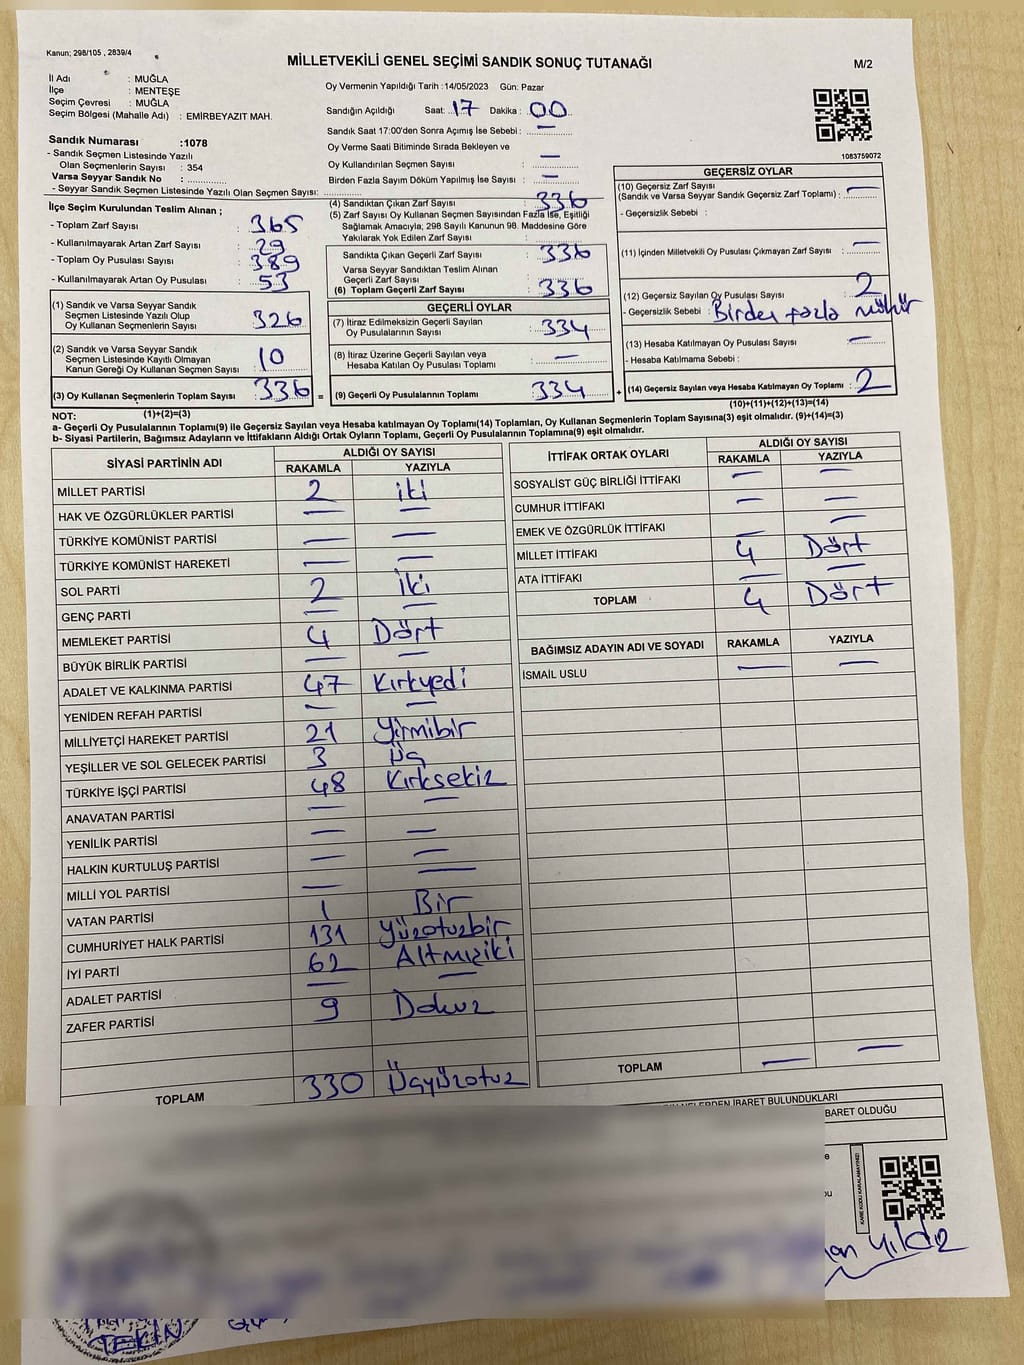 Kanun; 298/105 , 2839/4
MİLLETVEKİLİ GENEL SEÇİMİ SANDIK SONUÇ TUTANAĞI
M/2
İl Adı : MUĞLA
İlçe : MENTEŞE
Seçim Çevresi : MUĞLA
Seçim Bölgesi (Mahalle Adı) : EMİRBEYAZIT MAH.
Sandık Numarası :1078
- Sandık Seçmen Listesinde Yazılı
Olan Seçmenlerin Sayısı : 354
Varsa Seyyar Sandık No :
- Seyyar Sandık Seçmen Listesinde Yazılı Olan Seçmen Sayısı:
Oy Vermenin Yapıldığı Tarih : 14/05/2023 Gün: Pazar
Sandığın Açıldığı Saat: 17 Dakika : 00
Sandık Saat 17:00'den Sonra Açımış İse Sebebi : —
Oy Verme Saati Bitiminde Sırada Bekleyen ve
Oy Kullandırılan Seçmen Sayısı : —
Birden Fazla Sayım Döküm Yapılmış İse Sayısı : —
1083759072
İlçe Seçim Kurulundan Teslim Alınan ;
- Toplam Zarf Sayısı : 365
- Kullanılmayarak Artan Zarf Sayısı : 29
- Toplam Oy Pusulası Sayısı : 389
- Kullanılmayarak Artan Oy Pusulası : 53
(1) Sandık ve Varsa Seyyar Sandık
Seçmen Listesinde Yazılı Olup
Oy Kullanan Seçmenlerin Sayısı : 326
(2) Sandık ve Varsa Seyyar Sandık
Seçmen Listesinde Kayıtlı Olmayan
Kanun Gereği Oy Kullanan Seçmen Sayısı : 10
(3) Oy Kullanan Seçmenlerin Toplam Sayısı : 336 =
(1)+(2)=(3)
(4) Sandıktan Çıkan Zarf Sayısı : 336
(5) Zarf Sayısı Oy Kullanan Seçmen Sayısından Fazla İse, Eşitliği
Sağlamak Amacıyla; 298 Sayılı Kanunun 98. Maddesine Göre
Yakılarak Yok Edilen Zarf Sayısı :
Sandıkta Çıkan Geçerli Zarf Sayısı : 336
Varsa Seyyar Sandıktan Teslim Alınan
Geçerli Zarf Sayısı :
(6) Toplam Geçerli Zarf Sayısı : 336
GEÇERLİ OYLAR
(7) İtiraz Edilmeksizin Geçerli Sayılan
Oy Pusulalarının Sayısı : 334
(8) İtiraz Üzerine Geçerli Sayılan veya
Hesaba Katılan Oy Pusulası Toplamı : —
(9) Geçerli Oy Pusulalarının Toplamı : 334 +
GEÇERSİZ OYLAR
(10) Geçersiz Zarf Sayısı : —
(Sandık ve Varsa Seyyar Sandık Geçersiz Zarf Toplamı)
- Geçersizlik Sebebi :
(11) İçinden Milletvekili Oy Pusulası Çıkmayan Zarf Sayısı : —
(12) Geçersiz Sayılan Oy Pusulası Sayısı : 2
- Geçersizlik Sebebi : Birden fazla mühür
(13) Hesaba Katılmayan Oy Pusulası Sayısı : —
- Hesaba Katılmama Sebebi :
(14) Geçersiz Sayılan veya Hesaba Katılmayan Oy Toplamı : 2
(10)+(11)+(12)+(13)=(14)
NOT:
a- Geçerli Oy Pusulalarının Toplamı(9) ile Geçersiz Sayılan veya Hesaba katılmayan Oy Toplamı(14) Toplamları, Oy Kullanan Seçmenlerin Toplam Sayısına(3) eşit olmalıdır. (9)+(14)=(3)
b- Siyasi Partilerin, Bağımsız Adayların ve İttifakların Aldığı Ortak Oyların Toplamı, Geçerli Oy Pusulalarının Toplamına(9) eşit olmalıdır.
SİYASİ PARTİNİN ADI ALDIĞI OY SAYISI
RAKAMLA YAZIYLA
MİLLET PARTİSİ 2 iki
HAK VE ÖZGÜRLÜKLER PARTİSİ — —
TÜRKİYE KOMÜNİST PARTİSİ — —
TÜRKİYE KOMÜNİST HAREKETİ — —
SOL PARTİ 2 İki
GENÇ PARTİ — —
MEMLEKET PARTİSİ 4 Dört
BÜYÜK BİRLİK PARTİSİ — —
ADALET VE KALKINMA PARTİSİ 47 Kırkyedi
YENİDEN REFAH PARTİSİ — —
MİLLİYETÇİ HAREKET PARTİSİ 21 Yirmibir
YEŞİLLER VE SOL GELECEK PARTİSİ 3 Üç
TÜRKİYE İŞÇİ PARTİSİ 48 Kırksekiz
ANAVATAN PARTİSİ — —
YENİLİK PARTİSİ — —
HALKIN KURTULUŞ PARTİSİ — —
MİLLİ YOL PARTİSİ — —
VATAN PARTİSİ 1 Bir
CUMHURİYET HALK PARTİSİ 131 Yüzotuzbir
İYİ PARTİ 62 Altmışiki
ADALET PARTİSİ — —
ZAFER PARTİSİ 9 Dokuz
TOPLAM 330 Üçyüzotuz
İTTİFAK ORTAK OYLARI ALDIĞI OY SAYISI
RAKAMLA YAZIYLA
SOSYALİST GÜÇ BİRLİĞİ İTTİFAKI — —
CUMHUR İTTİFAKI — —
EMEK VE ÖZGÜRLÜK İTTİFAKI — —
MİLLET İTTİFAKI 4 Dört
ATA İTTİFAKI — —
TOPLAM 4 Dört
BAĞIMSIZ ADAYIN ADI VE SOYADI RAKAMLA YAZIYLA
İSMAİL USLU — —
TOPLAM — —
NELERDEN İBARET BULUNDUKLARI
BARET OLDUĞU
KARE KODU KARALAMAYINIZ!
Yıldız
TEKİN